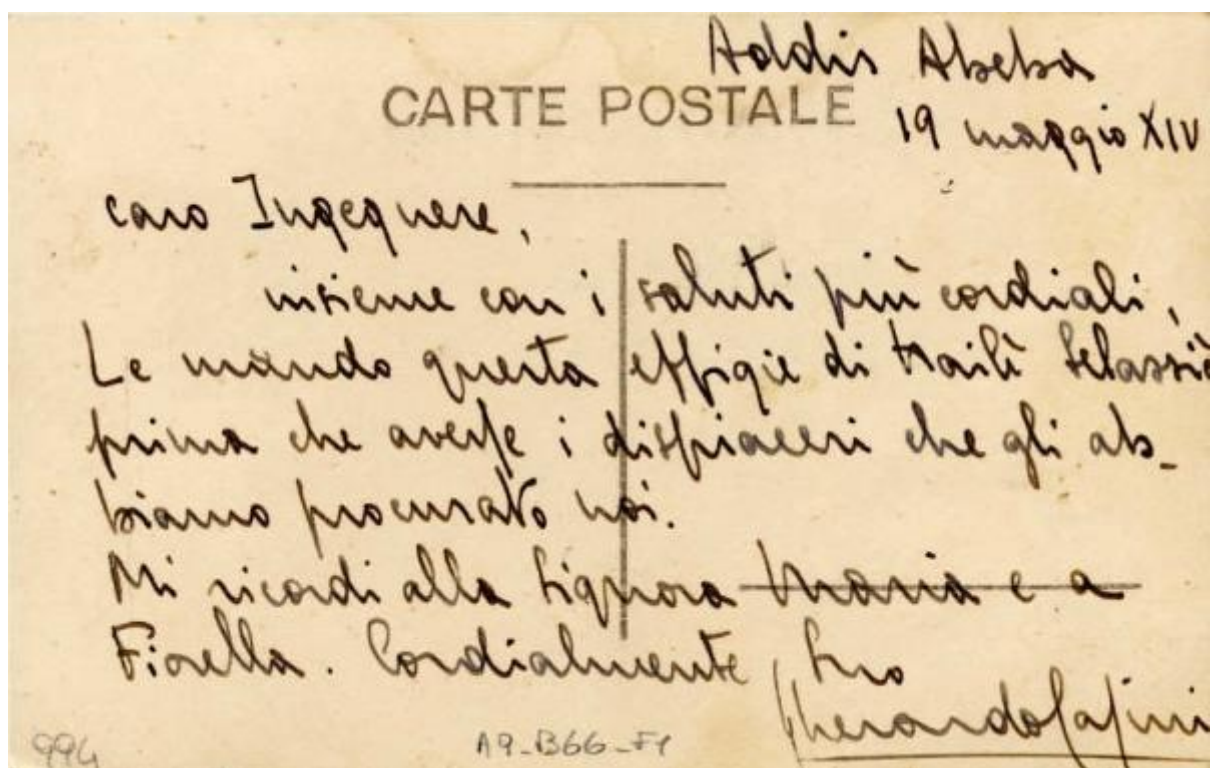 Addis Abeba
CARTE POSTALE
19 maggio XIV
caro Ingegnere,
insieme con i saluti più cordiali,
Le mando questa effigie di Hailè Selassiè
prima che avesse i dispiaceri che gli ab-
biamo procurato noi.
Mi ricordi alla Signora Maria e a
Fiorella. Cordialmente, suo
Gherardo Casini
994
A9-B66-F1